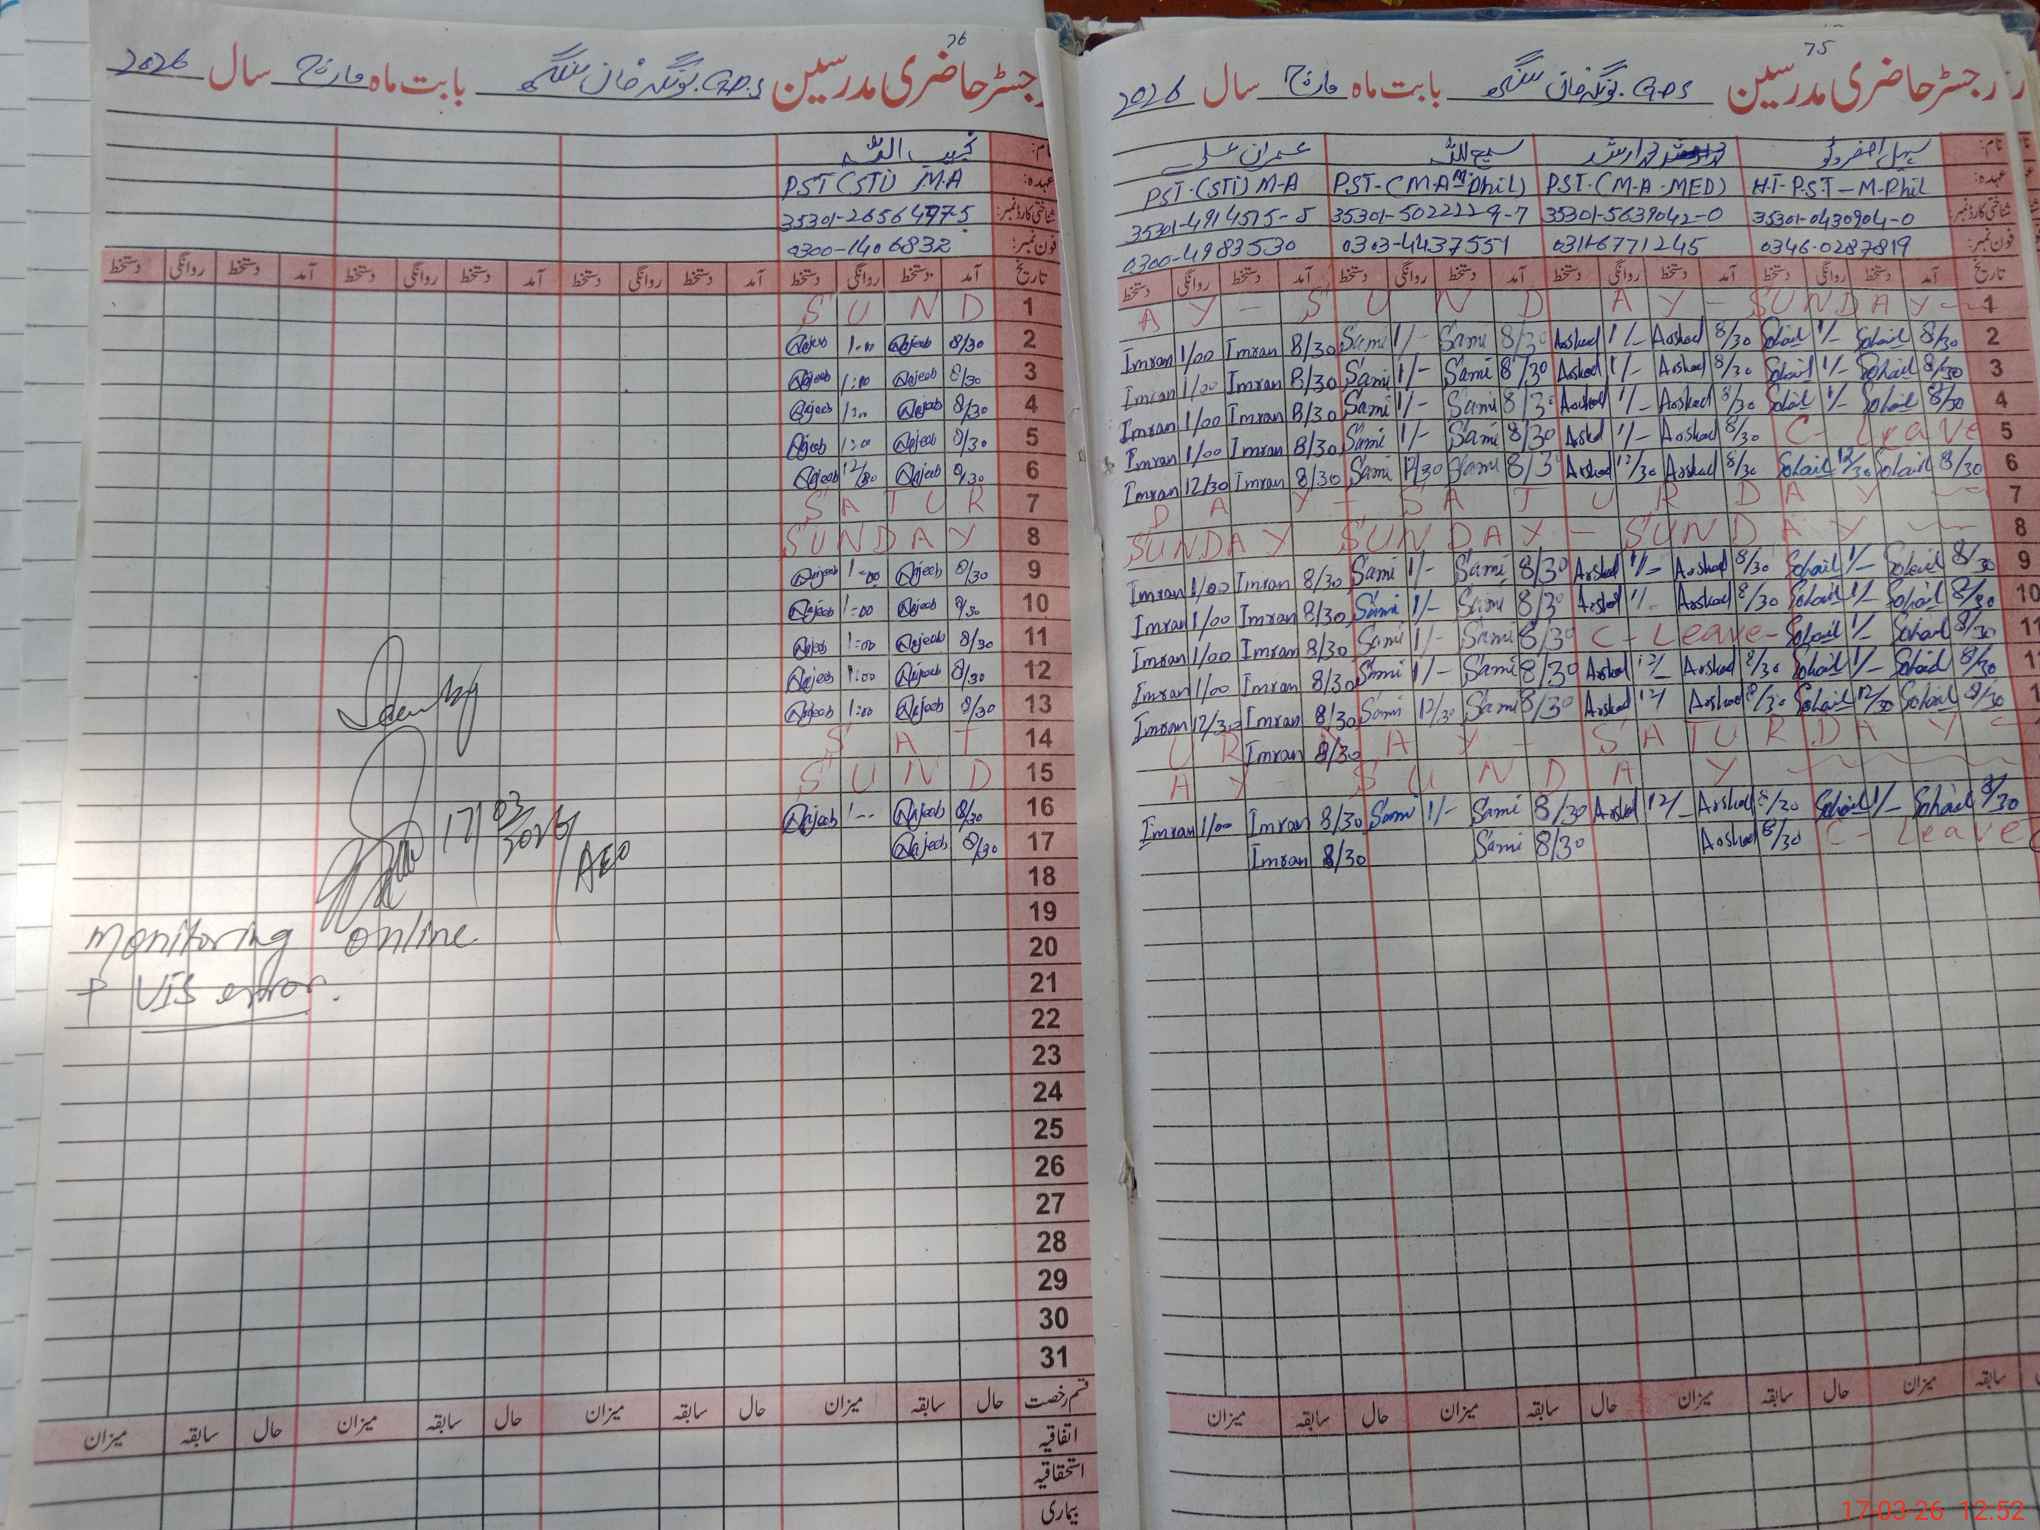 76
رجسٹر حاضری مدرسین G.P.S بابت ماہ مارچ سال 2026
نام: نجیب اللہ
عہدہ: PST (STI) M.A
شناختی کارڈ نمبر: 35301-2656497-5
فون نمبر: 0300-1406832
تاریخ آمد دستخط روانگی دستخط آمد دستخط روانگی دستخط آمد دستخط روانگی دستخط آمد دستخط روانگی دستخط
S U N D 1
Najeeb 1:00 Najeeb 8/30 2
Najeeb 1:00 Najeeb 8/30 3
Najeeb 1:00 Najeeb 8/30 4
Najeeb 1:00 Najeeb 8/30 5
Najeeb 12/30 Najeeb 8/30 6
S A T U R 7
SUNDAY 8
Najeeb 1:00 Najeeb 8/30 9
Najeeb 1:00 Najeeb 8/30 10
Najeeb 1:00 Najeeb 8/30 11
Najeeb 1:00 Najeeb 8/30 12
Najeeb 1:00 Najeeb 8/30 13
S A T 14
S U N D 15
Najeeb 1-- Najeeb 8/30 16
Najeeb 8/30 17
17/03/2026 AEO
18
19
monitoring online 20
+ VIS error. 21
22
23
24
25
26
27
28
29
30
31
قسم رخصت حال سابقہ میزان حال سابقہ میزان حال سابقہ میزان حال سابقہ میزان
اتفاقیہ
استحقاقیہ
بیماری
75
رجسٹر حاضری مدرسین G.P.S بابت ماہ مارچ سال 2026
نام: سہیل اصغر سمیع اللہ عمران علی
عہدہ: PST-(STI) M-A PST-(M-A M.Phil) PST-(M-A-MED) H-T-P.S.T-M-Phil
شناختی کارڈ نمبر: 35301-4914575-5 35301-5022229-7 35301-5639042-0 35301-0430904-0
فون نمبر: 0300-4983530 0303-4437551 0311-6771245 0346-0287819
تاریخ آمد دستخط روانگی دستخط آمد دستخط روانگی دستخط آمد دستخط روانگی دستخط آمد دستخط روانگی دستخط
A Y - S U N D A Y - SUNDAY 1
Imran 1/00 Imran 8/30 Sami 1/- Sami 8/30 Arshad 1/- Arshad 8/30 Sohail 1/- Sohail 8/30 2
Imran 1/00 Imran 8/30 Sami 1/- Sami 8/30 Arshad 1/- Arshad 8/30 Sohail 1/- Sohail 8/30 3
Imran 1/00 Imran 8/30 Sami 1/- Sami 8/30 Arshad 1/- Arshad 8/30 Sohail 1/- Sohail 8/30 4
Imran 1/00 Imran 8/30 Sami 1/- Sami 8/30 Arshad 1/- Arshad 8/30 C- Leave 5
Imran 12/30 Imran 8/30 Sami 12/30 Sami 8/30 Arshad 12/30 Arshad 8/30 Sohail 12/30 Sohail 8/30 6
D A Y - S A T U R D A Y 7
SUNDAY SUNDAY - SUNDAY 8
Imran 1/00 Imran 8/30 Sami 1/- Sami 8/30 Arshad 1/- Arshad 8/30 Sohail 1/- Sohail 8/30 9
Imran 1/00 Imran 8/30 Sami 1/- Sami 8/30 Arshad 1/- Arshad 8/30 Sohail 1/- Sohail 8/30 10
Imran 1/00 Imran 8/30 Sami 1/- Sami 8/30 C- Leave- Sohail 1/- Sohail 8/30 11
Imran 1/00 Imran 8/30 Sami 1/- Sami 8/30 Arshad 12/- Arshad 8/30 Sohail 1/- Sohail 8/30 1
Imran 12/30 Imran 8/30 Sami 12/30 Sami 8/30 Arshad 12/ Arshad 8/30 Sohail 12/30 Sohail 8/30 1
U R Imran 8/30 A Y - S A T U R D A Y
A Y - S U N D A Y
Imran 1/00 Imran 8/30 Sami 1/- Sami 8/30 Arshad 12/- Arshad 8/30 Sohail 1/- Sohail 8/30
Imran 8/30 Sami 8/30 Arshad 8/30 C- Leave
سابقہ میزان حال سابقہ میزان حال سابقہ میزان حال سابقہ میزان
17-03-26 12:52